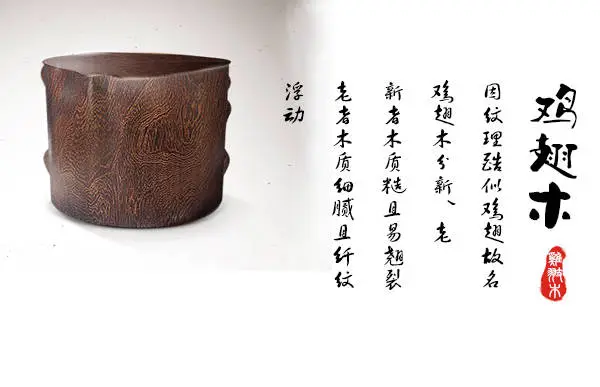 鸡翅木
雞翅木
因纹理酷似鸡翅故名
鸡翅木分新、老
新者木质糙且易翘裂
老者木质细腻且纤纹
浮动